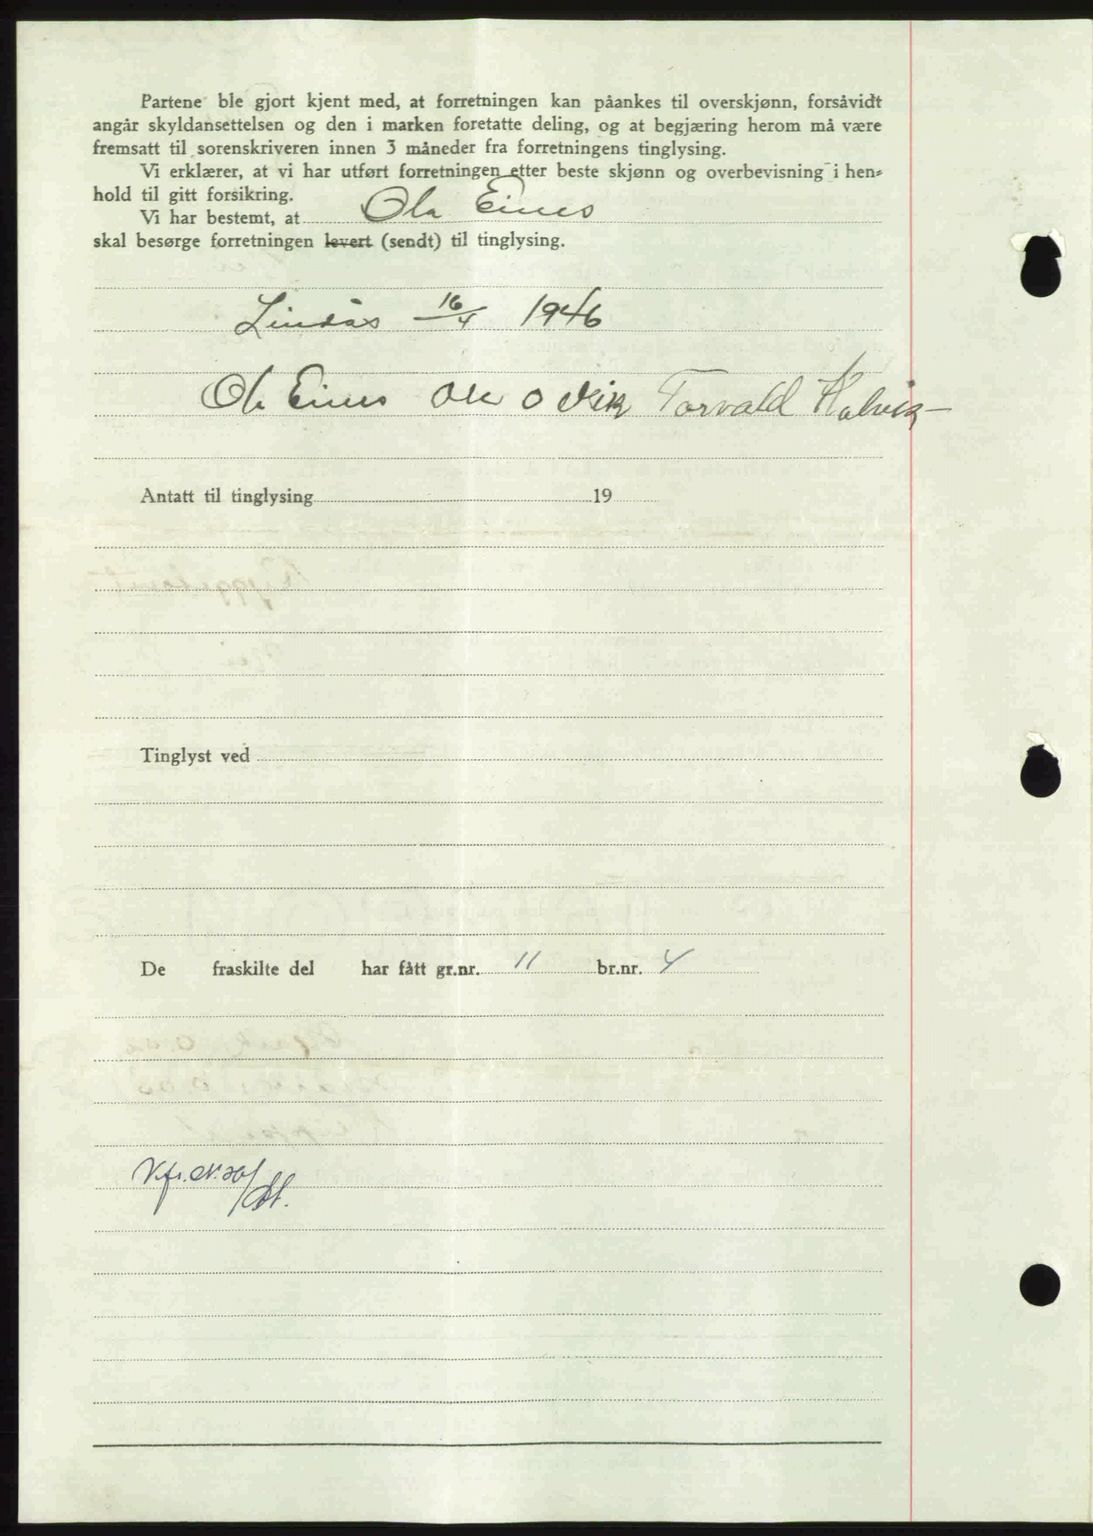 Partene ble gjort kjent med, at forretningen kan påankes til overskjønn, forsåvidt
angår skyldansettelsen og den i marken foretatte deling, og at begjæring herom må være
fremsatt til sorenskriveren innen 3 måneder fra forretningens tinglysing.
Vi erklærer, at vi har utført forretningen etter beste skjønn og overbevisning i hen-
hold til gitt forsikring.
Vi har bestemt, at Ola Eines
skal besørge forretningen levert (sendt) til tinglysing.
Lindås 16/4 1946
Ola Eines Ole O Vik Torvald Halvik
Antatt til tinglysing 19
Tinglyst ved
De fraskilte del har fått gr.nr. 11 br.nr. 4